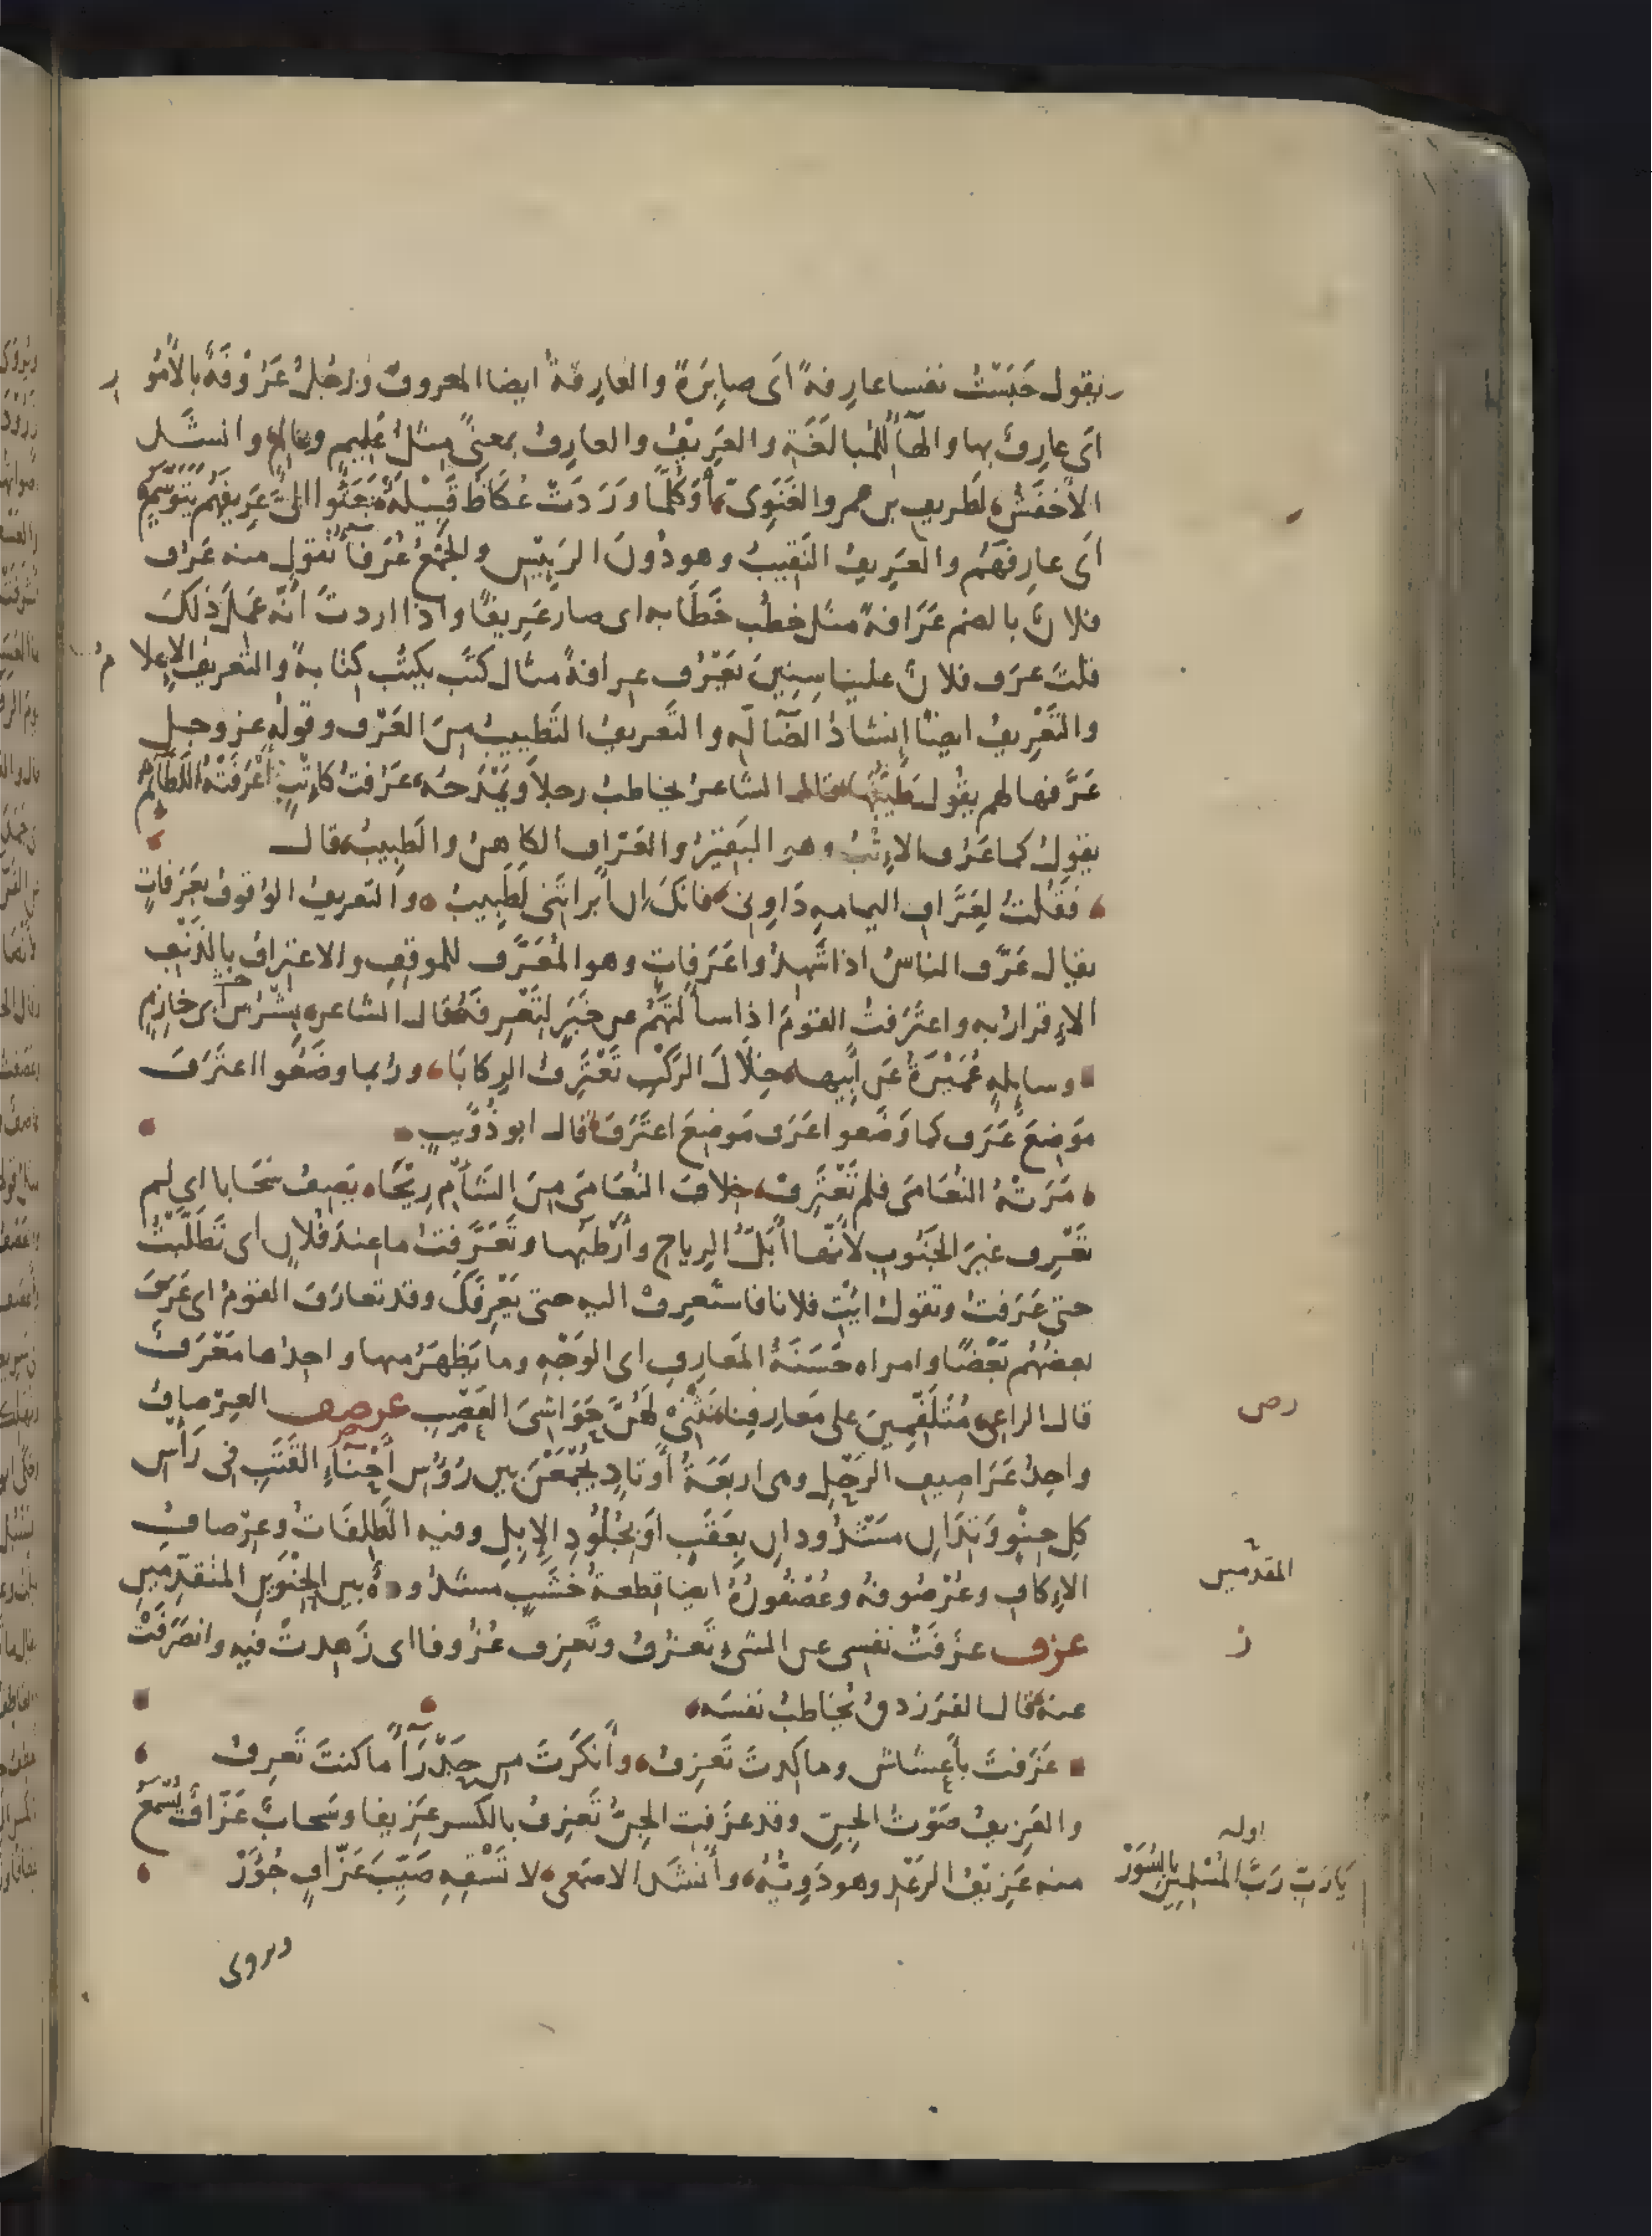 يقول حَبَسْتُ نفسا عارِفةً اى صابِرَةً والعَارِفَةُ ايضا المعروفُ ورَجُلٌ عَرُوْفَةٌ بالأُمُو ر
اَى عارِفٌ بها والهَآُ لِلْمُبالَغَةِ والعَرِيْفُ والعارِفُ بمعنىً مِثْلُ عَلِيمٍ وعالِمٍ وانشَد
الاَخفَشُ لطَرِيفِ بن عمرو الغَنَوِىّ أَوَكُلَّما وَرَدَتْ عُكَاظَ قَبِيْلَةٌ بَعَثُوا الىَّ عَرِيفَهُمْ يَتَوَسَّمُ
اَى عارِفَهُم والعَرِيفُ النَقِيبُ وهو دُونَ الرَئِيْسِ والجَمْعُ عُرَفَآُ تقول منه عَرُف
فلانٌ بالضم عَرَافةً مثل خطُب خَطَابه اى صار عَرِيفًا واذا اردتَ اَنّه عَمِلَ ذلكَ
قلتَ عرَف فلانٌ علينا سِنِينَ يَعْرُف عِرافةً مثال كتَب يكتُب كِتابةً والتَعريفُ الاِعلا مُ
والتَعْرِيفُ ايضًا إِنشادُ الضَآلَّهِ والتَعريفُ التَطييبُ مِنَ العَرْف وقولُه عز وجل
عَرَّفها لهم يقول طَيَّبَها قال الشاعرُ يخاطبُ رجلا ويَمْدَحُه عَرُفتَ كإِتْبٍ عَرَّفَتْهُ اللَطَآئِمُ
يقولُ كما عَرُف الاِتْبُ وهو البَقِيرُ والعَرّاف الكاهِنُ والطَبِيبُ قال
فَقُلتُ لِعَرَّافِ اليمامهِ دَاوِنى فانكَ اِن اَبْراتَنى لَطَبِيبُ والتَعريفُ الوُقوفُ بعَرَفاتٍ
يقال عَرَّف الناسُ اذا شَهِدُوا عَرَفاتٍ وهو المُعَرَّف للموقِفِ والاعتِرافُ بالذَنْبِ
الاِقرارُ به واعتَرَفتُ القومَ اذا سأَلتَهُمْ عن خَبَرٍ لِتَعْرِفَهُ قال الشاعر بِشْرُ بن ابى خازِمٍ
وسايِلهٍ عُمَيْرَةُ عَن اَبِيها خِلاَلَ الرَكْبِ تَعْتَرِفُ الرِكابَا وربما وضَعُوا اعتَرَفَ
مَوضِعَ عَرَف كما وَضَعو اعَرَف مَوضِعَ اعتَرَفَ قال ابو ذُوَيبٍ
مَرَتْهُ النُعَامَى فلم تَعْتَرِفْ خِلافَ النُعَامَى مِنَ الشَأْمِ رِيْحَا يَصِفُ سَحَابا اى لم
تَعْرِف غيرَ الجَنُوبِ لأَنّها أَبَلُّ الرِياحِ وأَرْطَبُها وتَعَرَّفتُ ما عِندَ فُلانٍ اى تَطَلَّبْتُ
حتى عَرَفتُ وتقولُ ائْتِ فلانا فاستَعرِفْ اليه حتى يَعْرِفَكَ وقد تعارَفَ القومُ اى عَرَفَ
بعضُهُم بَعْضًا وامراه حَسَنَةُ المَعارِفِ اى الوَجْهِ وما يَظهَرُ منها واحِدُها مَعْرَفٌ
قال الراعى مُتَلَفِّمِينَ على مَعارِفِنا نَثْنِى لَهُنَّ حَوَاشِىَ العَصْبِ عرصف العِرْصافُ
واحِدُ عَرَاصِيفِ الرَحْلِ وهى اربَعَةُ أَوتادٍ يُجْمَعْنَ بين رُؤُسِ أَحْنَآءِ القَتَبِ فى رَأْسِ
كلِّ حِنْوٍ وَتِدَانِ مَشْدُودانِ بِعَقَبٍ اَوْ بِجُلُودِ الإِبِلِ وفيه الظَلِفَاتُ وعِرْصافُ
الاِكافِ وعُرْصُوفُهُ وعُصْفُورُهُ ايضا قِطعةُ خَشَبٍ مشدُودهٌ بين الحِنْوَيْنِ المُتَقَدِّمَينِ
عزف عَزَفَتْ نفسِى عن الشىءِ تَعْزُفُ وتَعزِف عُزُوفا اى زَهِدتْ فيه وانصَرَفَتْ
عنه قال الفَرَزدقُ يُخاطبُ نفسَه
عَزَفتَ بأَعشاش وما كِدتَ تَعزِفُ وأَنكَرْتَ مِن حَدْرَآَ ما كنتَ تَعرِفُ
والعَزِيفُ صَوْتُ الجِنِّ وقد عزَفتِ الجِنُّ تَعزِفُ بالكسر عَزِيفا وسَحابٌ عَزّافٌ يُسْمَعُ
منه عَزِيْفُ الرَعْدِ وهو دَوِيُّهُ وأَنشَد الاصمَعى لا تَسْقِهِ صَيِّبَ عَزّافٍ جُؤَرْ
رص
المقدمين
ز
اوله
يَا رَبِّ رَبَّ المُسْلِمِيْنَ بالسُوَرْ
ويروى